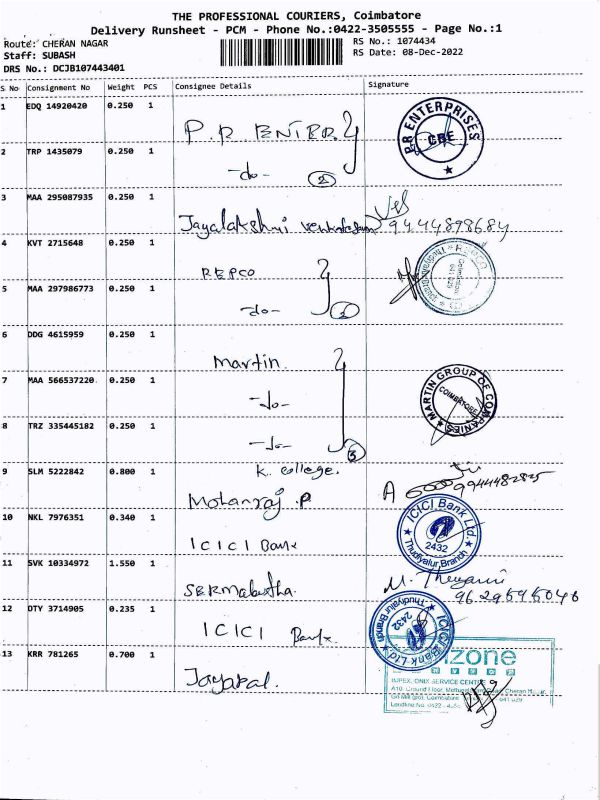 THE PROFESSIONAL COURIERS, Coimbatore
Delivery Runsheet - PCM - Phone No.:0422-3505555 - Page No.:1
Route: CHERAN NAGAR
RS No.: 1074434
Staff: SUBASH
RS Date: 08-Dec-2022
DRS No.: DCJB107443401
S No Consignment No Weight PCS Consignee Details Signature
1 EDQ 14920420 0.250 1
P.R ENTER
PR ENTERPRISES
CBE
2 TRP 1435079 0.250 1
-do- 2
3 MAA 295087935 0.250 1
Jayalakshmi
9444898684
4 KVT 2715648 0.250 1
REPCO
Thudiyalur Branch
Coimbatore
641 029
5 MAA 297986773 0.250 1
-do- 2
6 DDG 4615959 0.250 1
Martin
7 MAA 566537220 0.250 1
-do-
MARTIN GROUP OF COMPANIES
COIMBATORE
8 TRZ 335445182 0.250 1
-do- 3
9 SLM 5222842 0.800 1
K. College.
Mohanraj .P
10 NKL 7976351 0.340 1
ICICI Bank
ICICI Bank Ltd.
2432
Thudiyalur Branch
11 SVK 10334972 1.550 1
12 OTY 3714905 0.235 1
ICICI Bank
ICICI Bank Ltd.
2432
Thudiyalur Branch
13 KRR 781265 0.700 1
Jayapal.
INJPEX, ONIX SERVICE CENTRE